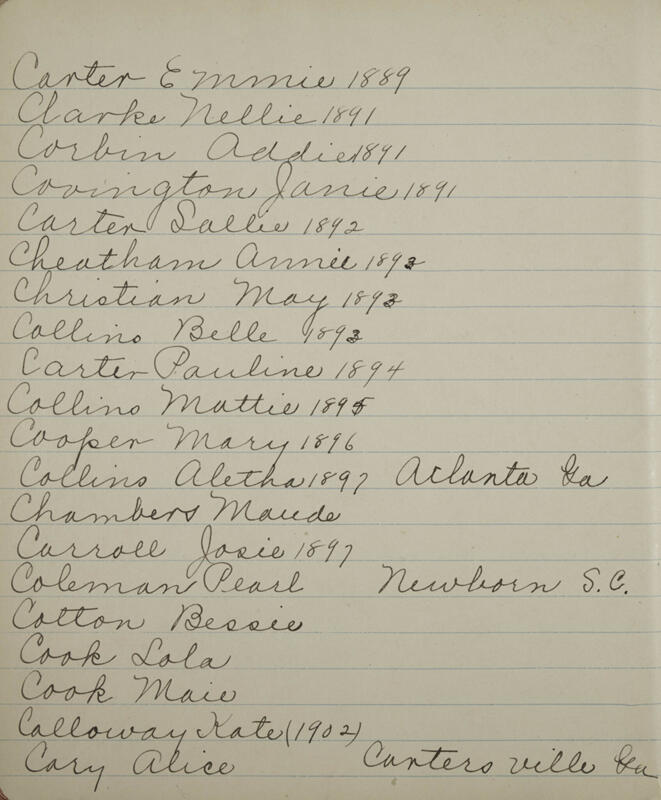 Carter Emmie 1889
Clarke Nellie 1891
Corbin Addie 1891
Covington Janie 1891
Carter Sallie 1892
Cheatham Annie 1893
Christian May 1893
Collins Belle 1893
Carter Pauline 1894
Collins Mattie 1895
Cooper Mary 1896
Collins Aletha 1897 Atlanta Ga
Chambers Maude
Carroll Josie 1897
Coleman Pearl Newborn S.C.
Cotton Bessie
Cook Lola
Cook Maie
Calloway Kate (1902)
Cary Alice Cartersville Ga